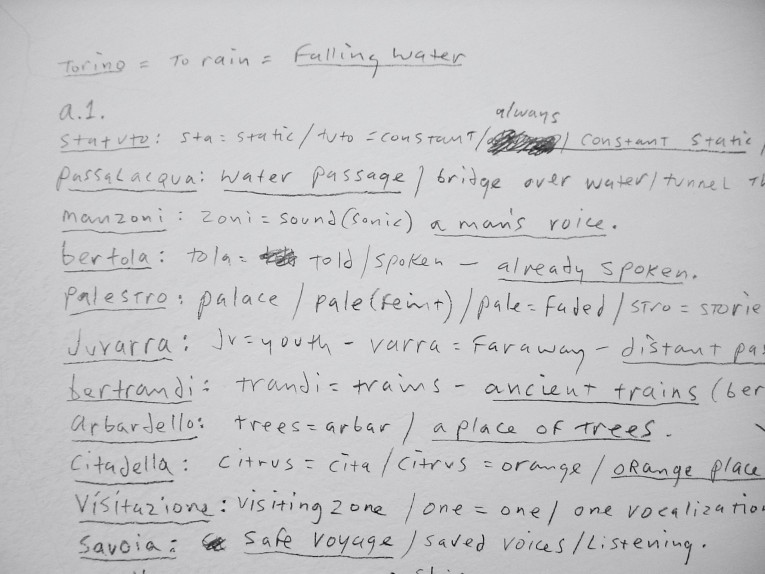 Torino = To rain = Falling water
a.1.
always
Statuto: sta = static / tuto = constant / / constant static /
Passalacqua: water passage / bridge over water / tunnel Th
Manzoni: Zoni = sound (sonic) a man's voice.
bertola: tola = told / spoken - already spoken.
Palestro: palace / pale (feint) / pale = faded / stro = storie
Juvarra: Ju = youth - varra = Faraway - distant pas
bertrandi: trandi = trains - ancient trains (ber
Arbardello: trees = arbar / a place of trees.
Citadella: citrus = cita / citrus = orange / orange place
Visitazione: visiting zone / one = one / one vocalization
Savoia: Safe voyage / saved voices / Listening.